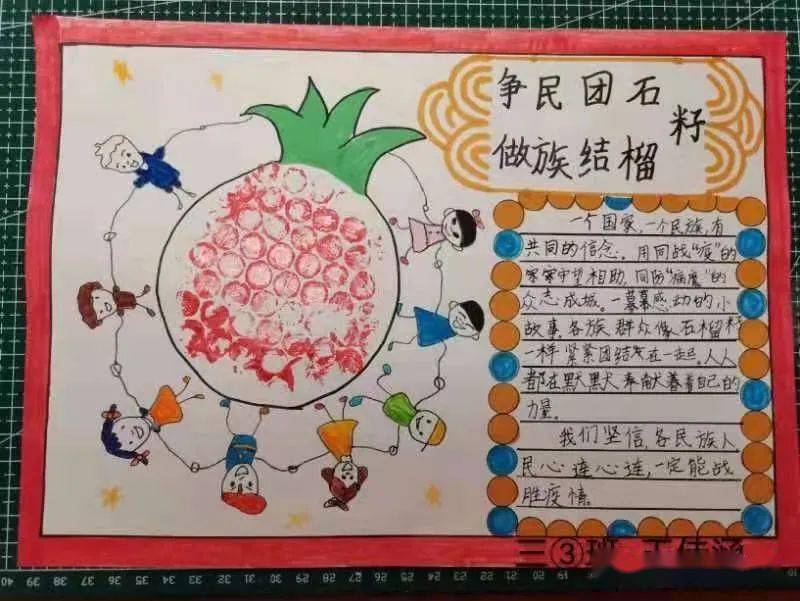 争民团石籽
做族结榴
一个国家,一个民族,有
共同的信念。用同战“疫”的
家家守望相助,同防“病魔”的
众志成城。一幕幕感动的小
故事各族群众像石榴籽
一样紧紧团结在一起。人人
都在默默奉献着自己的
力量。
我们坚信,各民族人
民心连心连,一定能战
胜疫情。
三③班
40 39 38 37 36 35 34 33 32 31 30 29 28 27